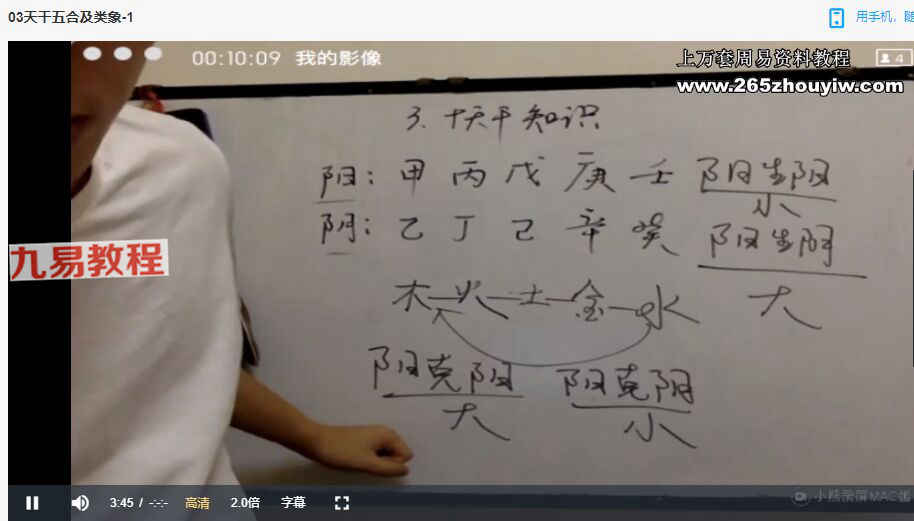 03天干五合及类象-1
用手机，随
00:10:09 我的影像
上万套周易资料教程
4
www.265zhouyiw.com
3、十天干知识
阳：甲 丙 戊 庚 壬 阳生阳
小
阴：乙 丁 己 辛 癸 阳生阴
大
九易教程
木—火—土—金—水
阳克阳 阳克阴
大 小
3:45 / -:-:- 高清 2.0倍 字幕
小熊录屏MAC版